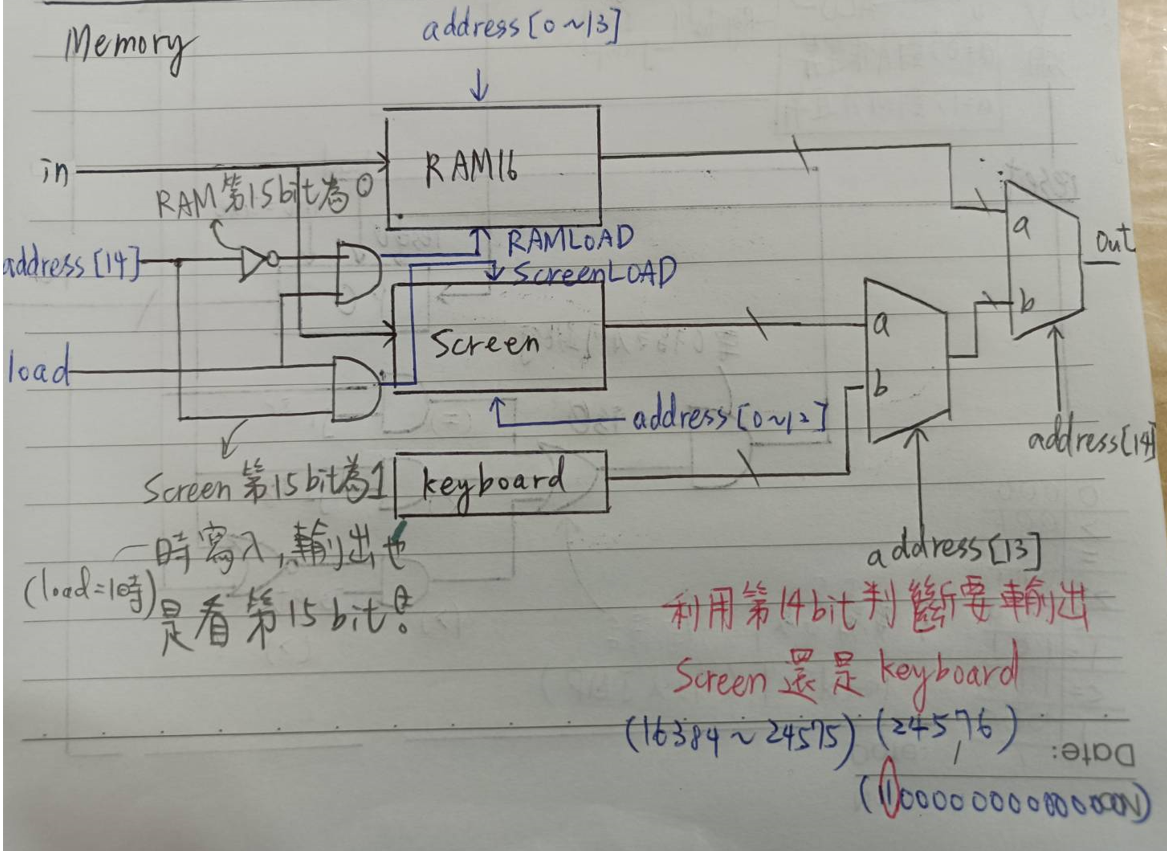 Memory
address[0~13]
in
RAM16
RAM第15bit為0
a
out
address[14]
RAMLOAD
ScreenLOAD
b
Screen
a
load
b
address[0~12]
address[14]
Screen第15bit為1
keyboard
時寫入,輸出也
(load=1時)
是看第15bit。
address[13]
利用第14bit判斷要輸出
Screen還是keyboard
(16384~24575) (24576)
Date: